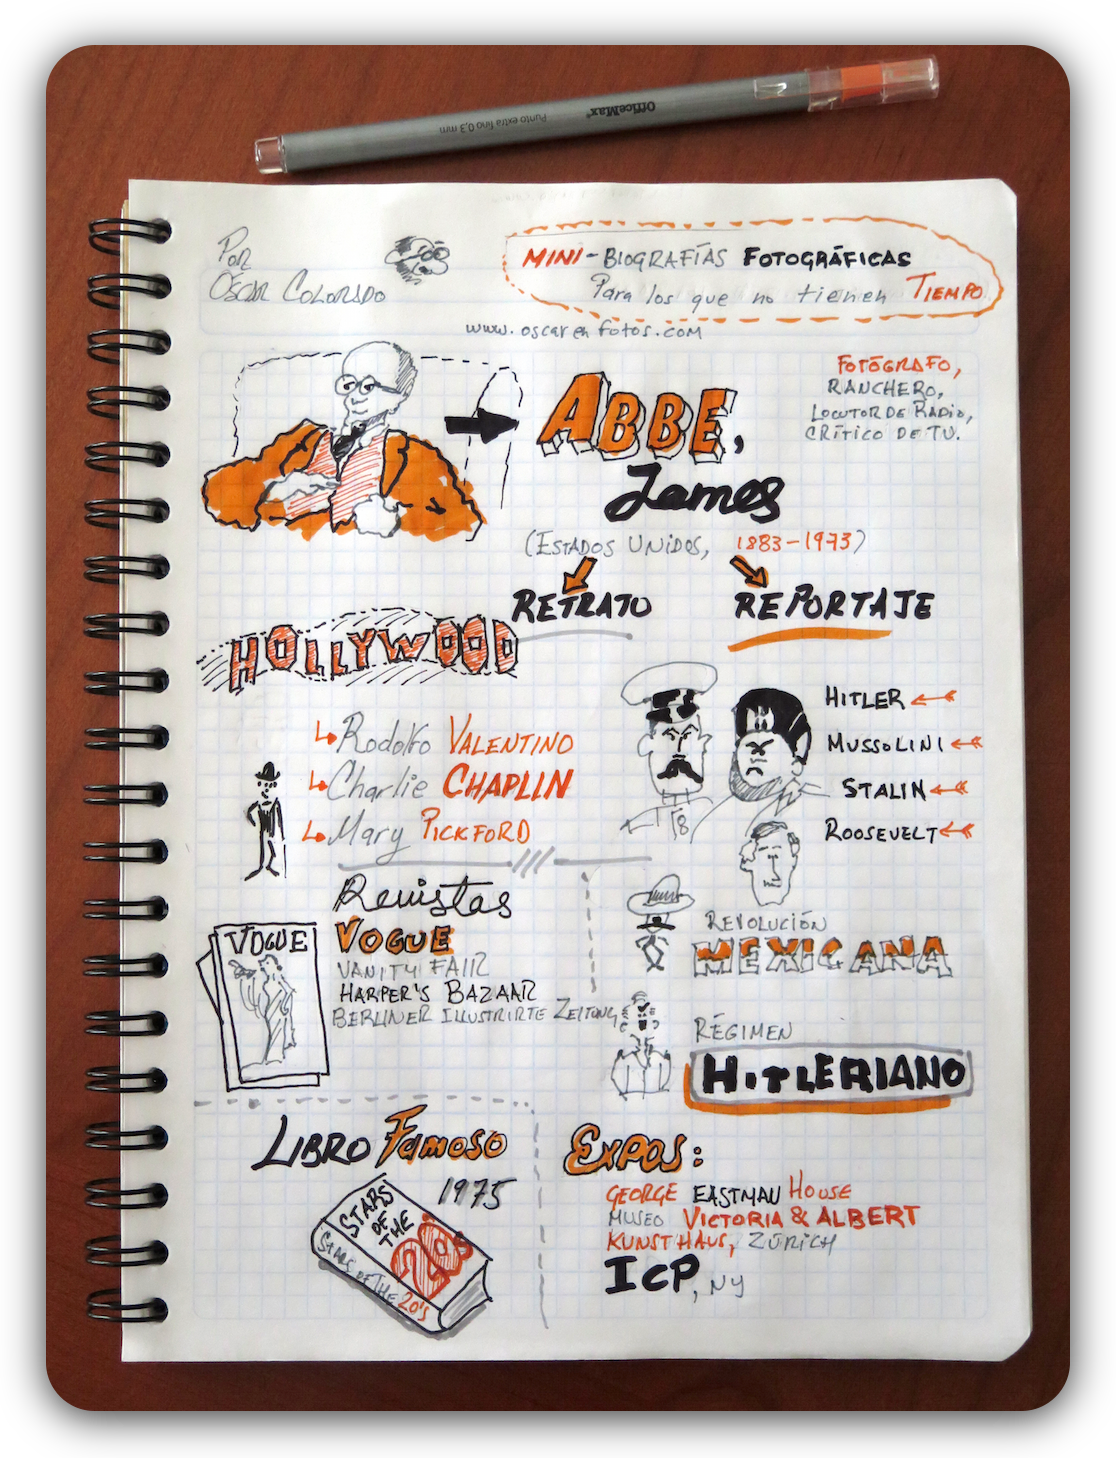 OfficeMax®
Punto extra fino 0,3 mm
Por
Óscar Colorado
MINI-BIOGRAFÍAS FOTOGRÁFICAS
Para los que no tienen TIEMPO
www.oscarenfotos.com
FOTÓGRAFO,
RANCHERO,
LOCUTOR DE RADIO,
CRÍTICO DE TV.
ABBE,
James
(ESTADOS UNIDOS, 1883-1973)
RETRATO
REPORTAJE
HOLLYWOOD
Rodolfo VALENTINO
Charlie CHAPLIN
Mary PICKFORD
HITLER
MUSSOLINI
STALIN
ROOSEVELT
Revistas
VOGUE
VANITY FAIR
HARPER'S BAZAAR
BERLINER ILLUSTRIRTE ZEITUNG
VOGUE
REVOLUCIÓN
MEXICANA
RÉGIMEN
HITLERIANO
LIBRO Famoso
1975
STARS
OF
THE
20s
STARS OF THE 20's
EXPOS:
GEORGE EASTMAN HOUSE
MUSEO VICTORIA & ALBERT
KUNSTHAUS, ZÜRICH
ICP, NY